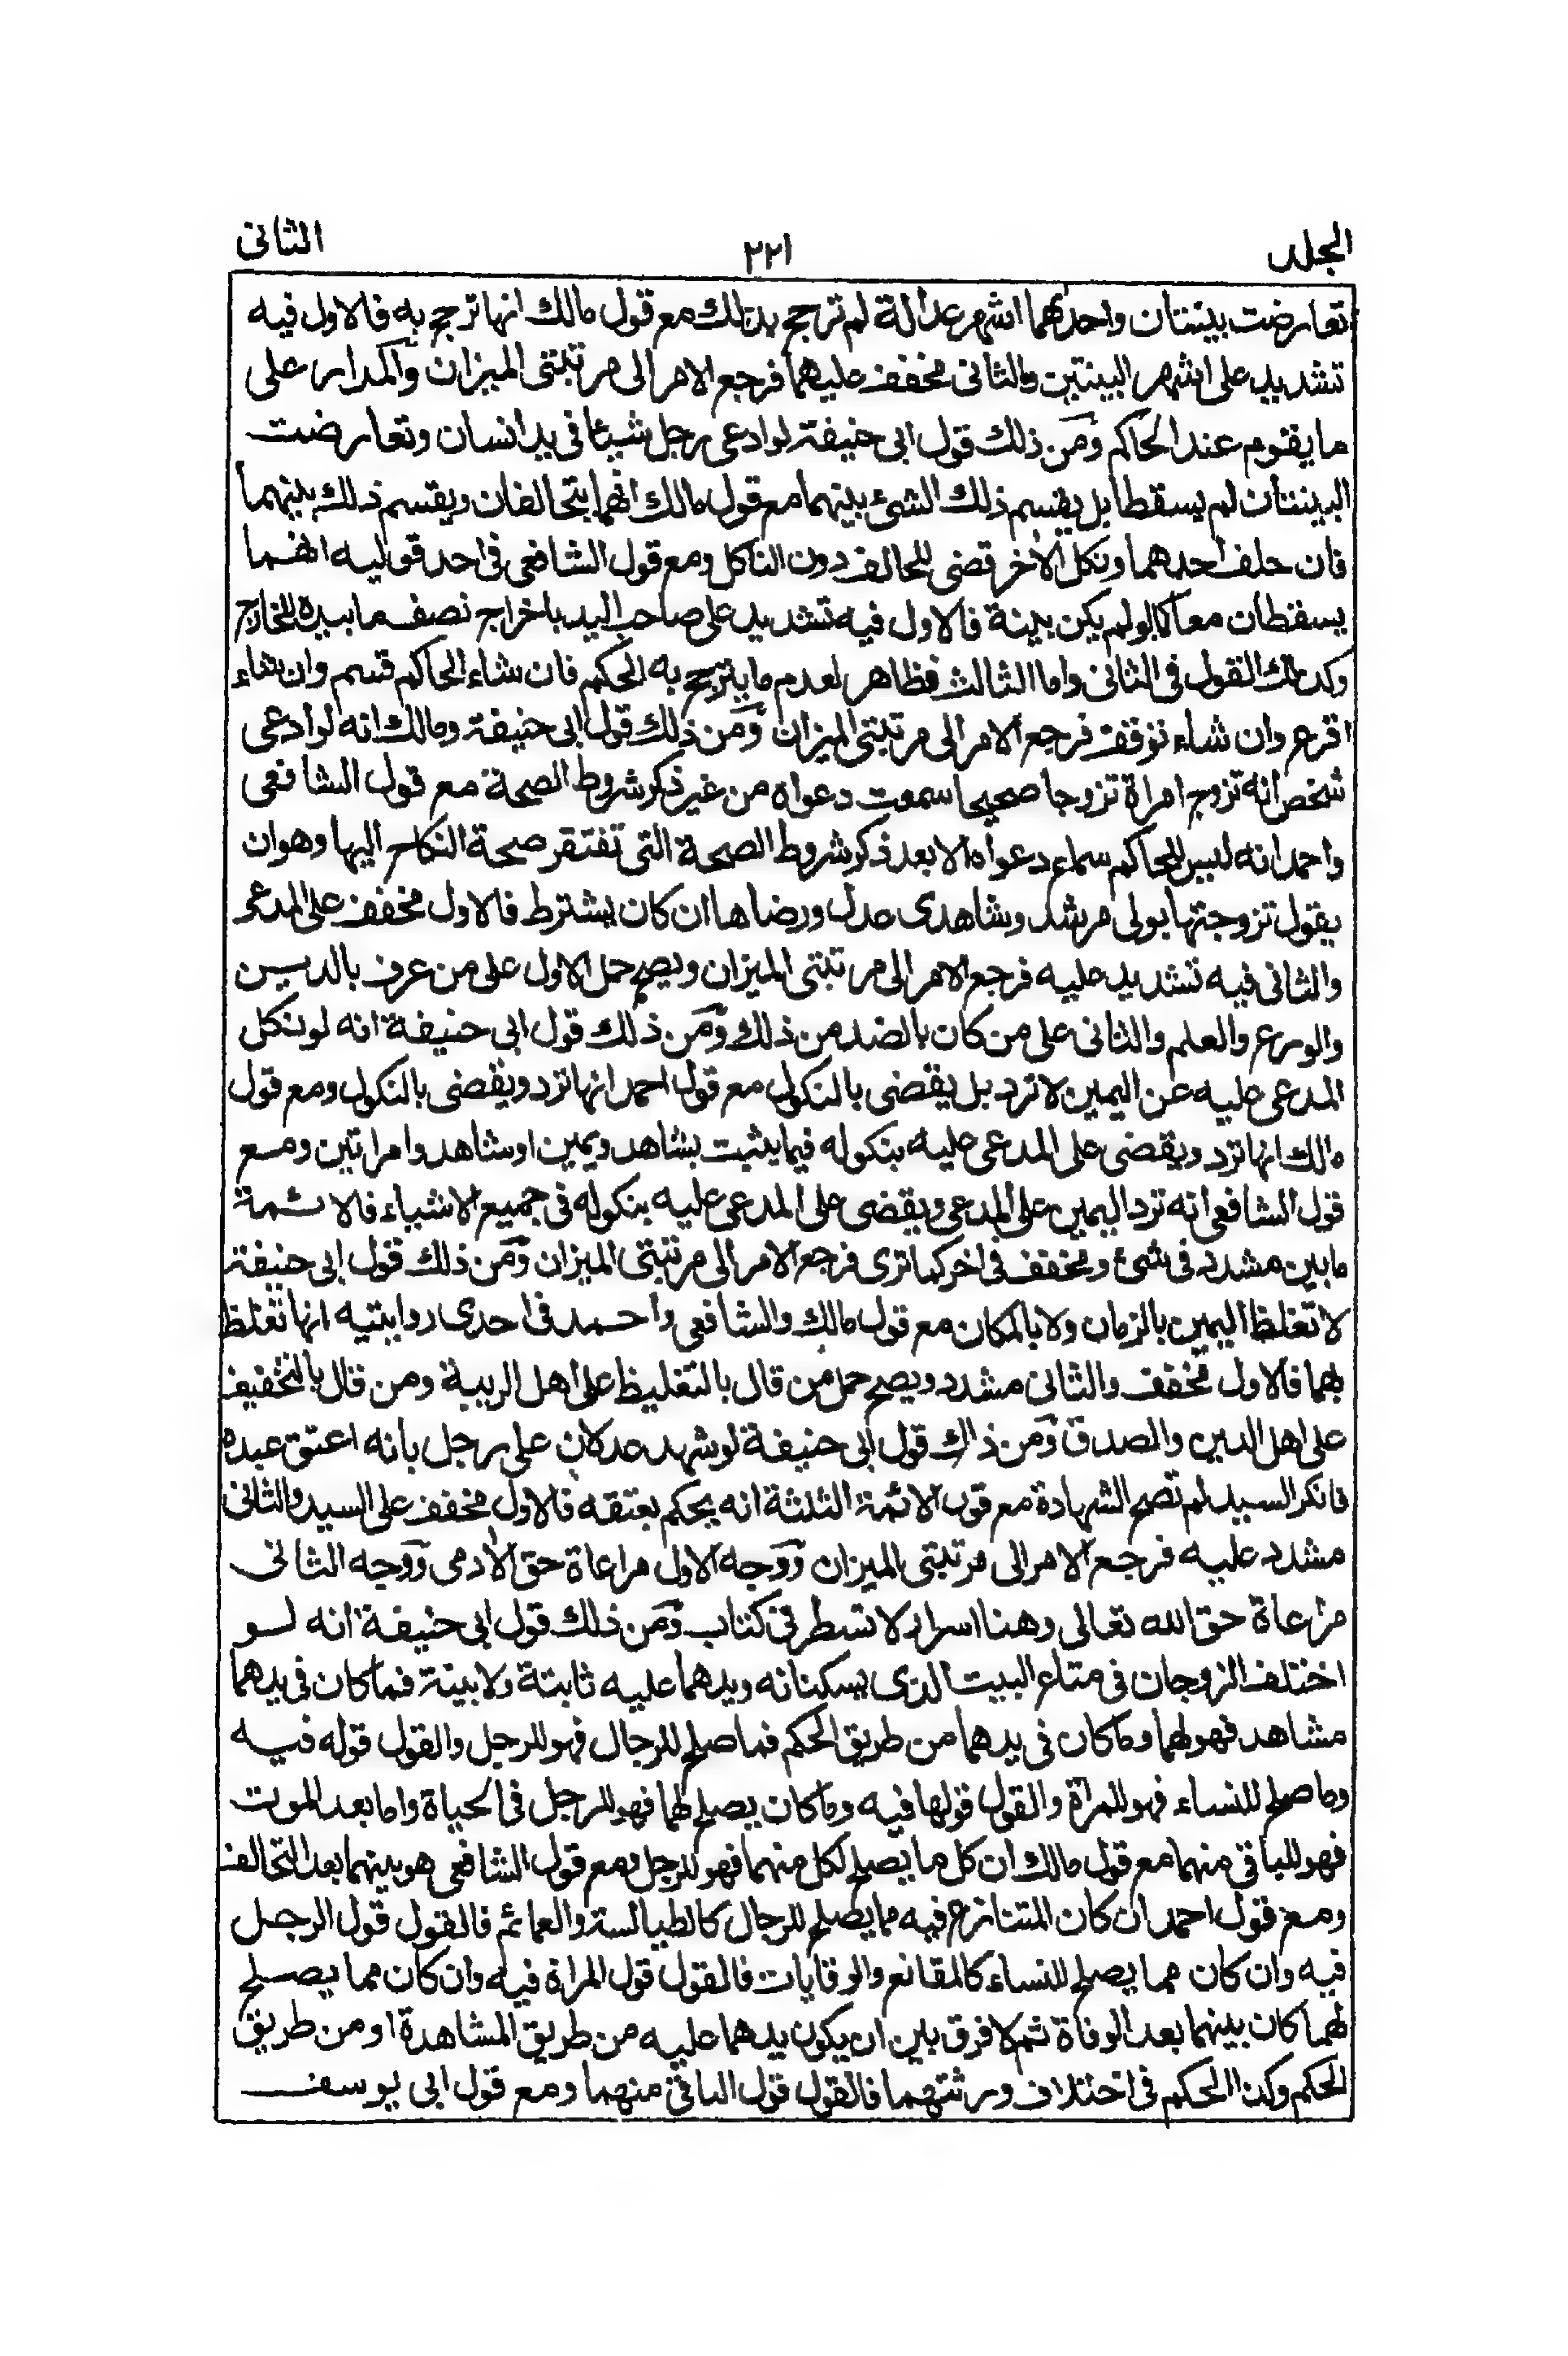 المجلد ٢٢١ الثانى
تعارضت بينتان واحدهما اشهر عدالة لم ترجح بذلك مع قول مالك انها ترجح به فالاول فيه
تشديد على اشهر البينتين والثانى مخفف عليهما فرجع الامر الى مرتبتى الميزان والمدار على
ما يقوم عند الحاكم ومن ذلك قول ابى حنيفة لو ادعى رجل شيئا فى يد انسان وتعارضت
البينتان لم يسقطا بل يقسم ذلك الشئ بينهما مع قول مالك انهما يتحالفان ويقسم ذلك بينهما
فان حلف احدهما ونكل الأخر قضى للحالف دون الناكل ومع قول الشافعى فى احد قوليه انهما
يسقطان معا كما لو لم يكن بينة فالاول فيه تشديد على صاحب اليد باخراج نصف ما بيده للخارج
وكذلك القول فى الثانى واما الثالث فظاهر لعدم ما يترجح به الحكم فان شاء الحاكم قسم وان شاء
اقرع وان شاء توقف فرجع الامر الى مرتبتى الميزان ومن ذلك قول ابى حنيفة ومالك انه لو ادعى
شخص انه تزوج امراة تزوجا صحيحا سمعت دعواه من غير ذكر شروط الصحة مع قول الشافعى
واحمد انه ليس للحاكم سماع دعواه الا بعد ذكر شروط الصحة التى تفتقر صحة النكاح اليها وهو ان
يقول تزوجتها بولى مرشد وشاهدى عدل ورضاها ان كان يشترط فالاول مخفف على المدعى
والثانى فيه تشديد عليه فرجع الامر الى مرتبتى الميزان ويصح حمل الاول على من عرف بالدين
والورع والعلم والثانى على من كان بالضد من ذلك ومن ذلك قول ابى حنيفة انه لو نكل
المدعى عليه عن اليمين لا ترد بل يقضى بالنكول مع قول احمد انها ترد ويقضى بالنكول ومع قول
مالك انها ترد ويقضى على المدعى عليه بنكوله فيما يثبت بشاهد ويمين او شاهد وامراتين ومع
قول الشافعى انه ترد اليمين على المدعى ويقضى على المدعى عليه بنكوله فى جميع الاشياء فالائمة
ما بين مشدد فى شئ ومخفف فى اخر كما ترى فرجع الامر الى مرتبتى الميزان ومن ذلك قول ابى حنيفة
لا تغلظ اليمين بالزمان ولا بالمكان مع قول مالك والشافعى واحمد فى احدى روايتيه انها تغلظ
بهما فالاول مخفف والثانى مشدد ويصح حمل من قال بالتغليظ على اهل الريبة ومن قال بالتخفيف
على اهل الدين والصدق ومن ذلك قول ابى حنيفة لو شهد عدلان على رجل بانه اعتق عبده
فانكر السيد لم تصح الشهادة مع قول الائمة الثلثة انه يحكم بعتقه فالاول مخفف على السيد والثانى
مشدد عليه فرجع الامر الى مرتبتى الميزان ووجه الاول مراعاة حق الأدمى ووجه الثانى
مراعاة حق الله تعالى وهنا اسرار لا تسطر فى كتاب ومن ذلك قول ابى حنيفة انه لو
اختلف الزوجان فى متاع البيت الذى يسكنانه ويدهما عليه ثابتة ولا بينة فما كان فى يدهما
مشاهد فهو لهما وما كان فى يدهما من طريق الحكم فما صلح للرجال فهو للرجل والقول قوله فيه
وما صلح للنساء فهو للمراة والقول قولها فيه وما كان يصلح لهما فهو للرجل فى الحياة واما بعد الموت
فهو للباقى منهما مع قول مالك ان كل ما يصلح لكل منهما فهو للرجل ومع قول الشافعى هو بينهما بعد التحالف
ومع قول احمد ان كان المتنازع فيه مما يصلح للرجال كالطيالسة والعمائم فالقول قول الرجل
فيه وان كان مما يصلح للنساء كالمقانع والوقايات فالقول قول المراة فيه وان كان مما يصلح
لهما كان بينهما بعد الوفاة ثم لا فرق بين ان يكون يدهما عليه من طريق المشاهدة او من طريق
الحكم وكذا الحكم فى اختلاف ورثتهما فالقول قول الباقى منهما ومع قول ابى يوسف